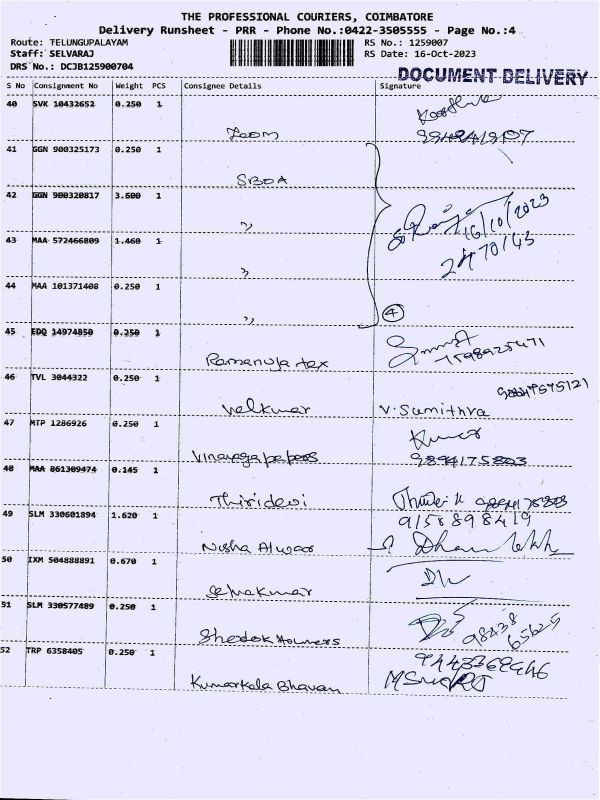 THE PROFESSIONAL COURIERS, COIMBATORE
Delivery Runsheet - PRR - Phone No.:0422-3505555 - Page No.:4
Route: TELUNGUPALAYAM RS No.: 1259007
Staff: SELVARAJ RS Date: 16-Oct-2023
DRS No.: DCJB125900704
DOCUMENT DELIVERY
S No Consignment No Weight PCS Consignee Details Signature
40 SVK 10432652 0.250 1
Zoom
41 GGN 900325173 0.250 1
SBOA
42 GGN 900320817 3.600 1
"
16/10/2023
43 MAA 572466809 1.460 1
"
44 MAA 101371408 0.250 1
" 4
45 EDQ 14974850 0.250 1
Ramanuja tex
46 TVL 3044322 0.250 1
Velkumar V. Sumithra
47 MTP 1286926 0.250 1
Kumar
Vinayaga papers 9894175803
48 MAA 861309474 0.145 1
Thiridevi
49 SLM 330601894 1.620 1 9158898419
Nisha Alwar
50 IXM 504888891 0.670 1
Selvakumar
51 SLM 330577489 0.250 1
98438
65625
52 TRP 6358405 0.250 1
Kumarkala Bhavan